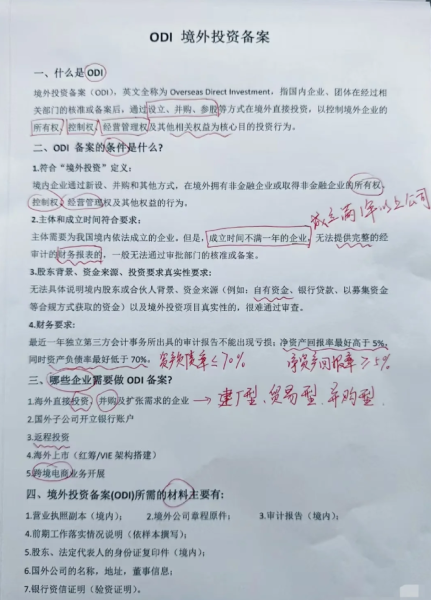 ODI 境外投资备案
一、什么是 ODI
境外投资备案（ODI），英文全称为 Overseas Direct Investment，指国内企业、团体在经过相
关部门的核准或备案后，通过设立、并购、参股等方式在境外直接投资，以控制境外企业的
所有权、控制权、经营管理权及其他相关权益为核心目的投资行为。
二、ODI 备案的条件是什么?
1.符合“境外投资”定义：
境内企业通过新设、并购和其他方式，在境外拥有非金融企业或取得非金融企业的所有权、
控制权、经营管理权及其他权益的行为。
成立满1年以上公司
2.主体和成立时间符合要求：
主体需要为我国境内依法成立的企业。但是，成立时间不满一年的企业，无法提供完整的经
审计的财务报表的，一般无法通过审批部门的核准或备案。
3.股东背景、资金来源、投资要求真实性要求：
无法具体说明境内股东或合伙人背景、资金来源（例如：自有资金、银行贷款、以募集资金
等合规方式获取的资金）以及境外投资项目真实性的，很难通过审查。
4.财务要求：
最近一年独立第三方会计事务所出具的审计报告不能出现亏损；净资产回报率最好高于 5%，
同时资产负债率最好低于 70%。 资产负债率≤70% 净资产回报率≥5%
三、哪些企业需要做 ODI 备案?
1.海外直接投资、并购及扩张需求的企业 → 建厂型、贸易型、并购型
2.国外子公司开立银行账户
3.返程投资
4.海外上市（红筹/VIE 架构搭建）
5.跨境电商业务开展
四、境外投资备案(ODI)所需的材料主要有:
1.营业执照副本（境内）； 2.境外公司章程原件； 3.审计报告（境内）；
4.前期工作落实情况说明（依样本撰写）；
5.股东、法定代表人的身份证复印件（境内）；
6.国外公司的名称，地址，董事信息；
7.银行资信证明（验资证明）。